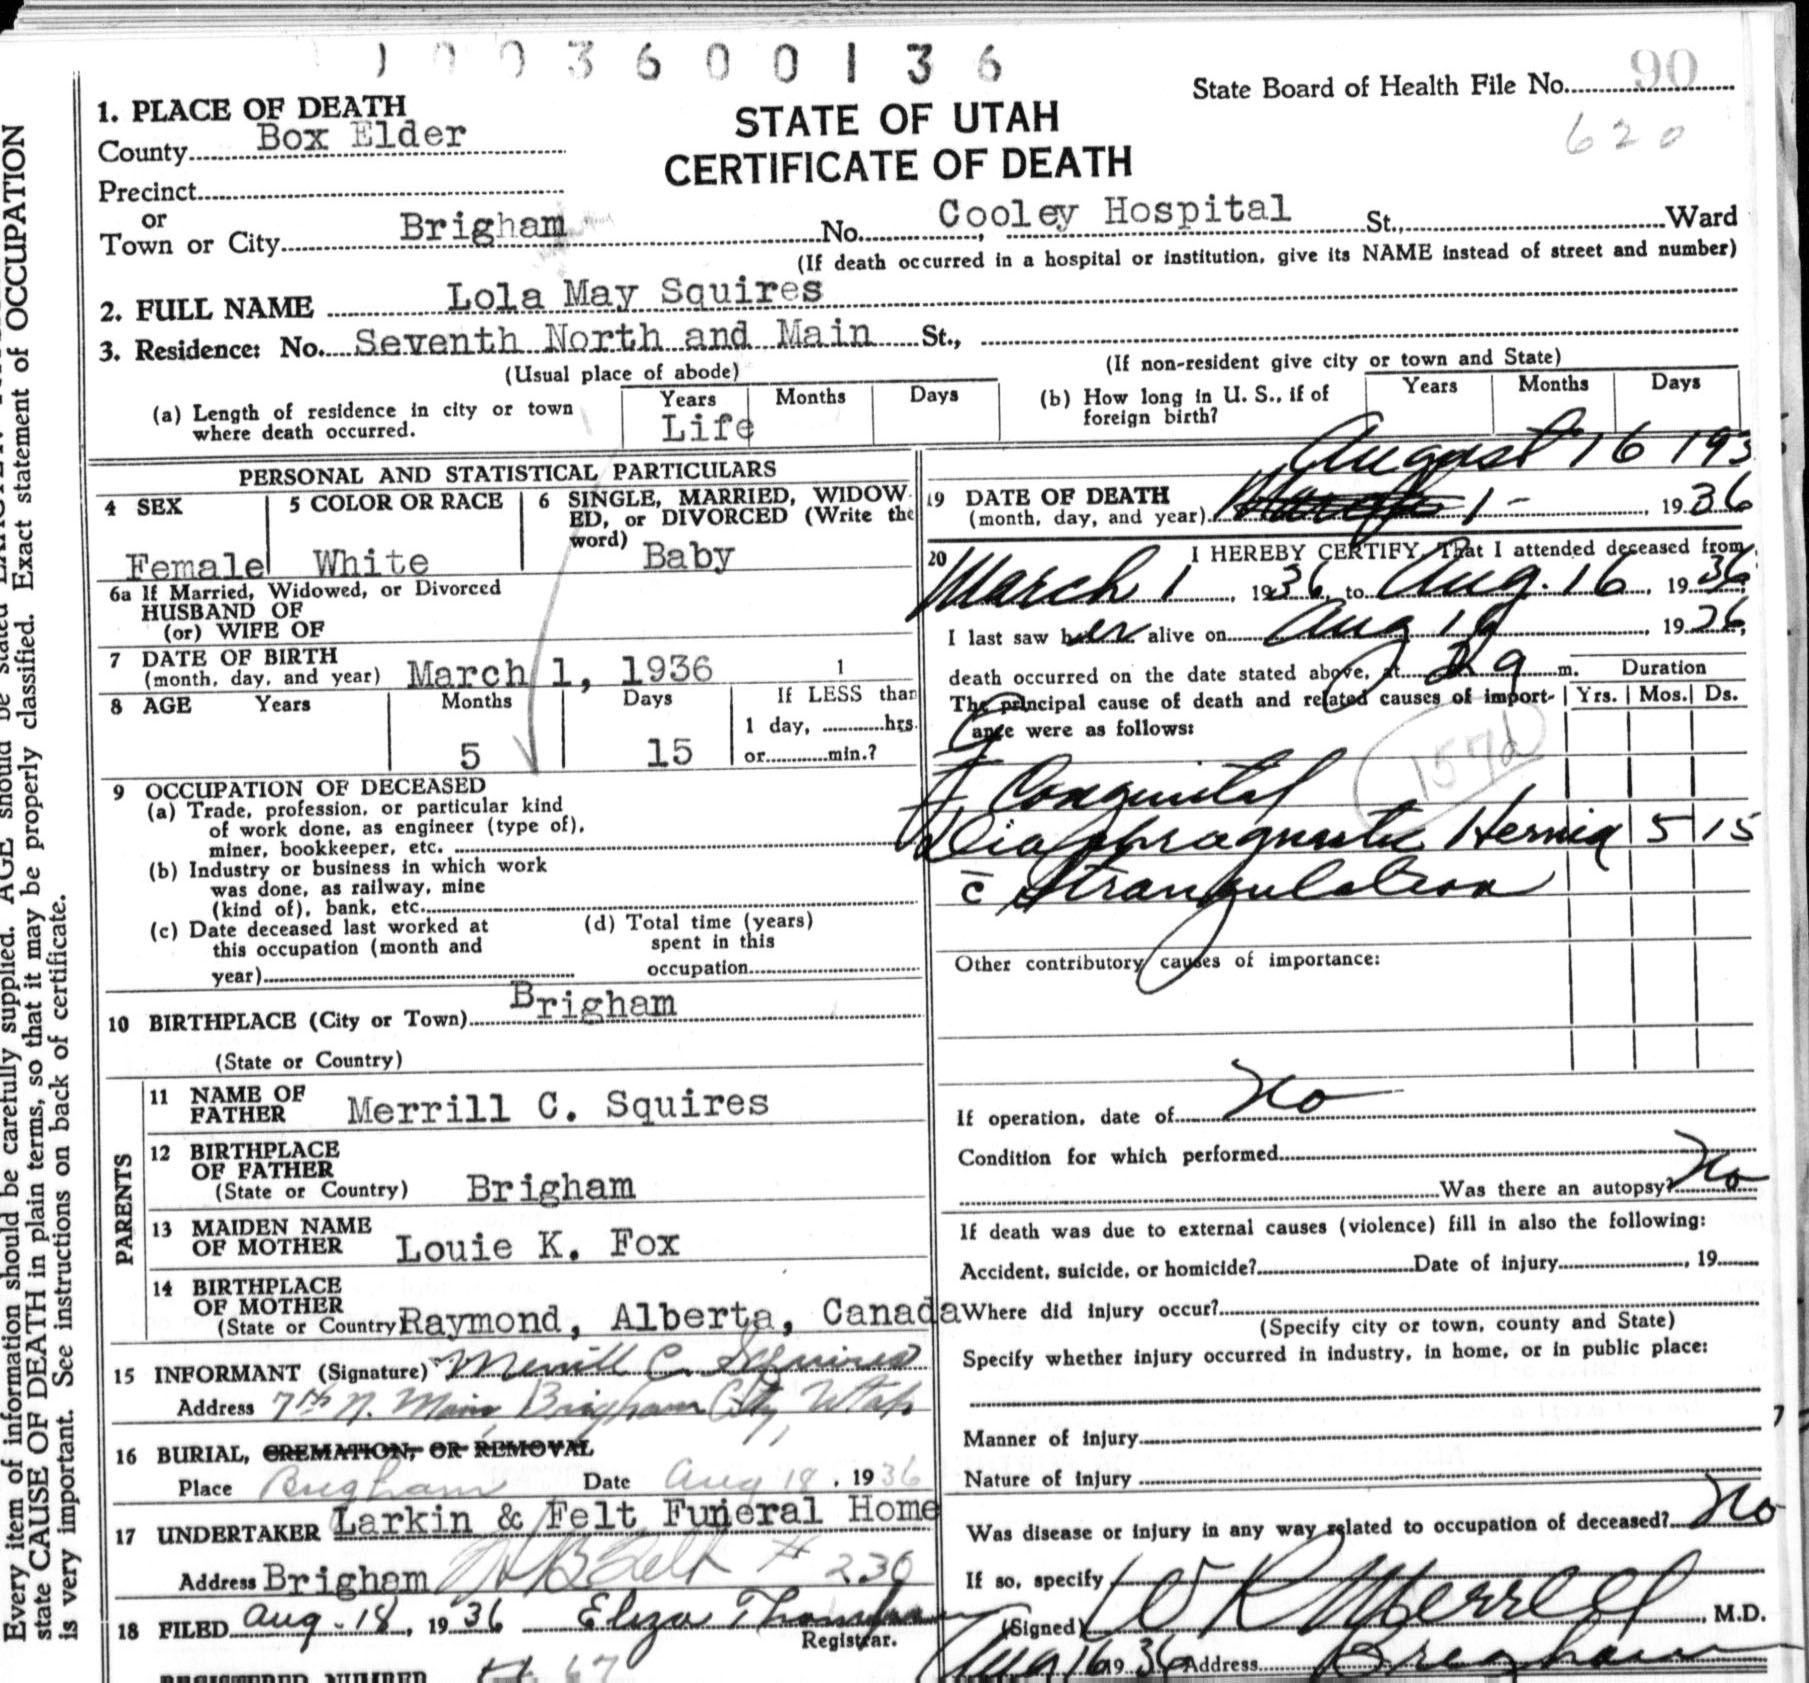 1003600136
State Board of Health File No. 90
620
STATE OF UTAH
CERTIFICATE OF DEATH
1. PLACE OF DEATH
County Box Elder
Precinct
or
Town or City Brigham No. Cooley Hospital St., Ward
(If death occurred in a hospital or institution, give its NAME instead of street and number)
2. FULL NAME Lola May Squires
3. Residence: No. Seventh North and Main St.,
(Usual place of abode) (If non-resident give city or town and State)
(a) Length of residence in city or town where death occurred. Years Life Months Days
(b) How long in U. S., if of foreign birth? Years Months Days
PERSONAL AND STATISTICAL PARTICULARS
4 SEX Female
5 COLOR OR RACE White
6 SINGLE, MARRIED, WIDOWED, or DIVORCED (Write the word) Baby
6a If Married, Widowed, or Divorced
HUSBAND OF
(or) WIFE OF
7 DATE OF BIRTH
(month, day, and year) March 1, 1936 1
8 AGE Years Months 5 Days 15 If LESS than
1 day, hrs.
or min.?
9 OCCUPATION OF DECEASED
(a) Trade, profession, or particular kind
of work done, as engineer (type of),
miner, bookkeeper, etc.
(b) Industry or business in which work
was done, as railway, mine
(kind of), bank, etc.
(c) Date deceased last worked at
this occupation (month and
year)
(d) Total time (years)
spent in this
occupation
10 BIRTHPLACE (City or Town) Brigham
(State or Country)
PARENTS
11 NAME OF
FATHER Merrill C. Squires
12 BIRTHPLACE
OF FATHER
(State or Country) Brigham
13 MAIDEN NAME
OF MOTHER Louie K. Fox
14 BIRTHPLACE
OF MOTHER
(State or Country Raymond, Alberta, Canada
15 INFORMANT (Signature) Merrill C. Squires
Address 7th N. Main, Brigham City, Utah
16 BURIAL, CREMATION, OR REMOVAL
Place Brigham Date Aug 18, 1936
17 UNDERTAKER Larkin & Felt Funeral Home
Address Brigham # 230
18 FILED Aug. 18, 1936 Eliza
Registrar.
REGISTERED NUMBER 67
August 16 193
19 DATE OF DEATH
(month, day, and year) March 1 - 1936
20 I HEREBY CERTIFY, That I attended deceased from
March 1, 1936, to Aug. 16, 1936
I last saw her alive on Aug 16, 1936,
death occurred on the date stated above, at m. Duration
The principal cause of death and related causes of importance were as follows: Yrs. Mos. Ds.
157d
Congenital
Diaphragmatic Hernia 5 15
c Strangulation
Other contributory causes of importance:
If operation, date of No
Condition for which performed
Was there an autopsy? No
If death was due to external causes (violence) fill in also the following:
Accident, suicide, or homicide? Date of injury , 19
Where did injury occur?
(Specify city or town, county and State)
Specify whether injury occurred in industry, in home, or in public place:
Manner of injury
Nature of injury
Was disease or injury in any way related to occupation of deceased? No
If so, specify
(Signed) W R Merrell, M.D.
Aug 16 1936 Address Brigham
Every item of information should be carefully supplied. AGE should be stated
state CAUSE OF DEATH in plain terms, so that it may be properly classified. Exact statement of OCCUPATION
is very important. See instructions on back of certificate.